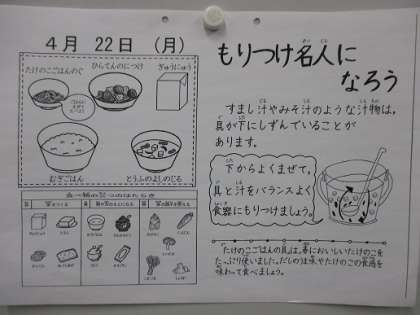 4月 22日 (月)
たけのこごはんのぐ
ひらてんのにつけ
ぎゅうにゅう
むぎごはん
とうふのよしのじる
もりつけ名人に
なろう
すまし汁やみそ汁のような汁物は、
具が下にしずんでいることが
あります。
下からよくまぜて、
具と汁をバランスよく
食器にもりつけましょう。
「たけのこごはんの具」は、春においしいたけのこを
たっぷり使いました。だしのうま味やたけのこの食感を
味わって食べましょう。